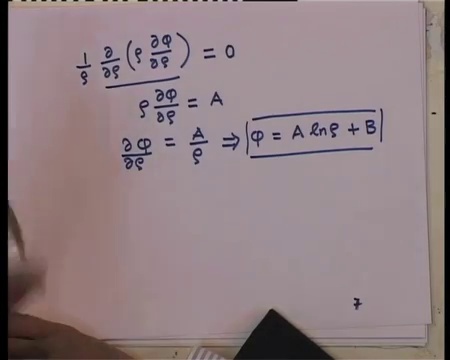 1/ρ ∂/∂ρ (ρ ∂φ/∂ρ) = 0
ρ ∂φ/∂ρ = A
∂φ/∂ρ = A/ρ ⇒ φ = A ln ρ + B
7